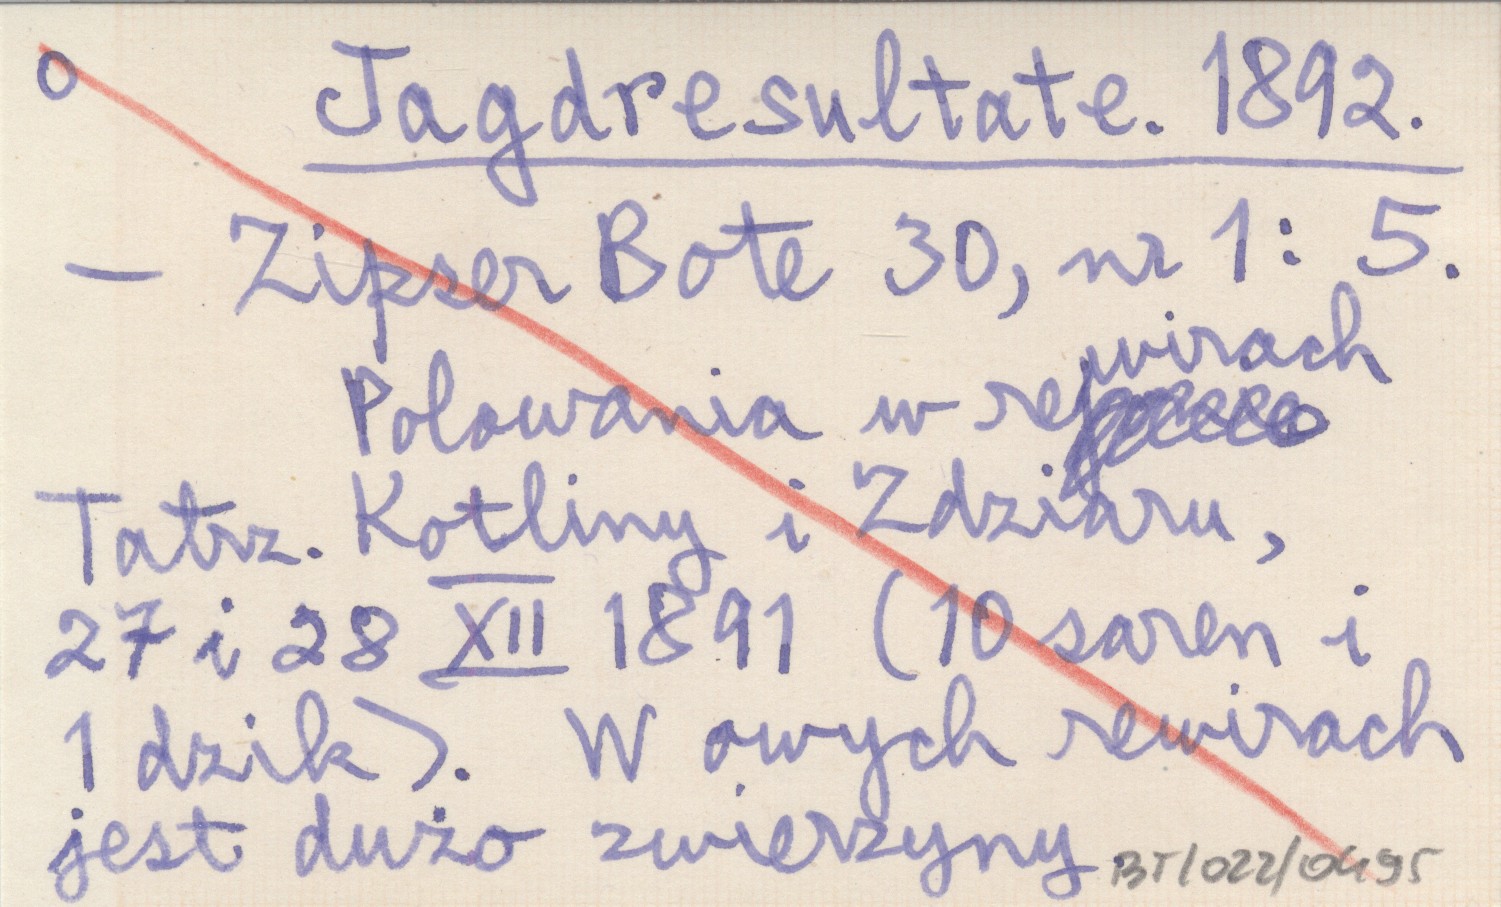 o Jagdresultate. 1892.
— Zipser Bote 30, nr 1: 5.
Polowania w rewirach
Tatrz. Kotliny i Zdziaru,
27 i 28 XII 1891 (10 saren i
1 dzik). W owych rewirach
jest dużo zwierzyny
BT/022/0495